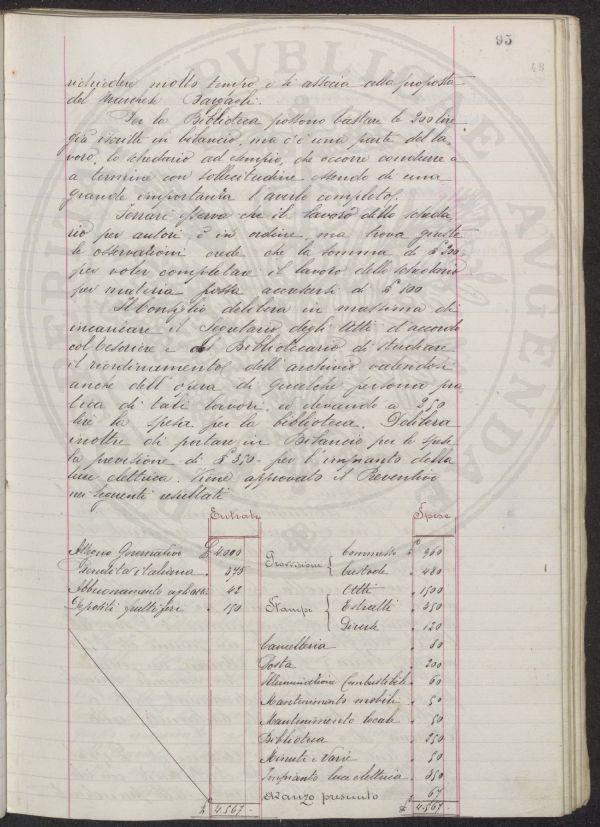 95
48
richiedere molto tempo e si associa alla proposta
del Marchese Bargagli.
Per la Biblioteca possono bastare le 200 lire
già iscritte in bilancio, ma c'è una parte del la-
voro, lo schedario ad esempio, che occorre condurre
a termine con sollecitudine essendo di una
grande importanza l'averlo completo.
Ferrari osserva che il lavoro dello scheda
rio per autori è in ordine, ma trova giuste
le osservazioni crede che la somma di £ 200
per voler completare il lavoro dello schedario
per materia possa accostarsi di £ 100
Il Consiglio delibera in massima di
incaricare il Segretario degli Atti d'accordo
col Tesoriere e Bibliotecario di studiare
il riordinamento dell'archivio valendosi
anche dell'opera di qualche persona pra
tica di tali lavori, elevando a 250
lire la spesa per la biblioteca. Delibera
inoltre di portare in Bilancio per le spese
la previsione di £ 350 - per l'impianto della
luce elettrica. Viene approvato il Preventivo
nei seguenti resultati
Entrate
Assegno Governativo £ 4.000
Rendita italiana " 375
Abbuonamento agli atti " 42
Depositi fruttiferi " 150
£ 4.567 -
Spese
Provvisioni { Commesso £ 360
Custode " 480
Stampe { Atti " 1500
Estratti " 350
Diverse " 120
Cancelleria " 80
Posta " 200
Illuminazione Combustibili " 60
Mantenimento mobili " 50
Mantenimento locale " 50
Biblioteca " 250
Minuti e Varie " 50
Impianto luce elettrica " 350
Avanzo presunto " 67
£ 4.567 -